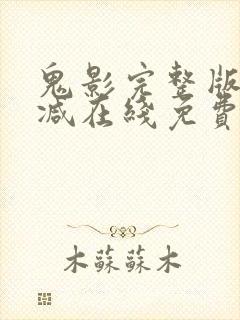 鬼影完整版
减在綫免費
木蘇蘇木